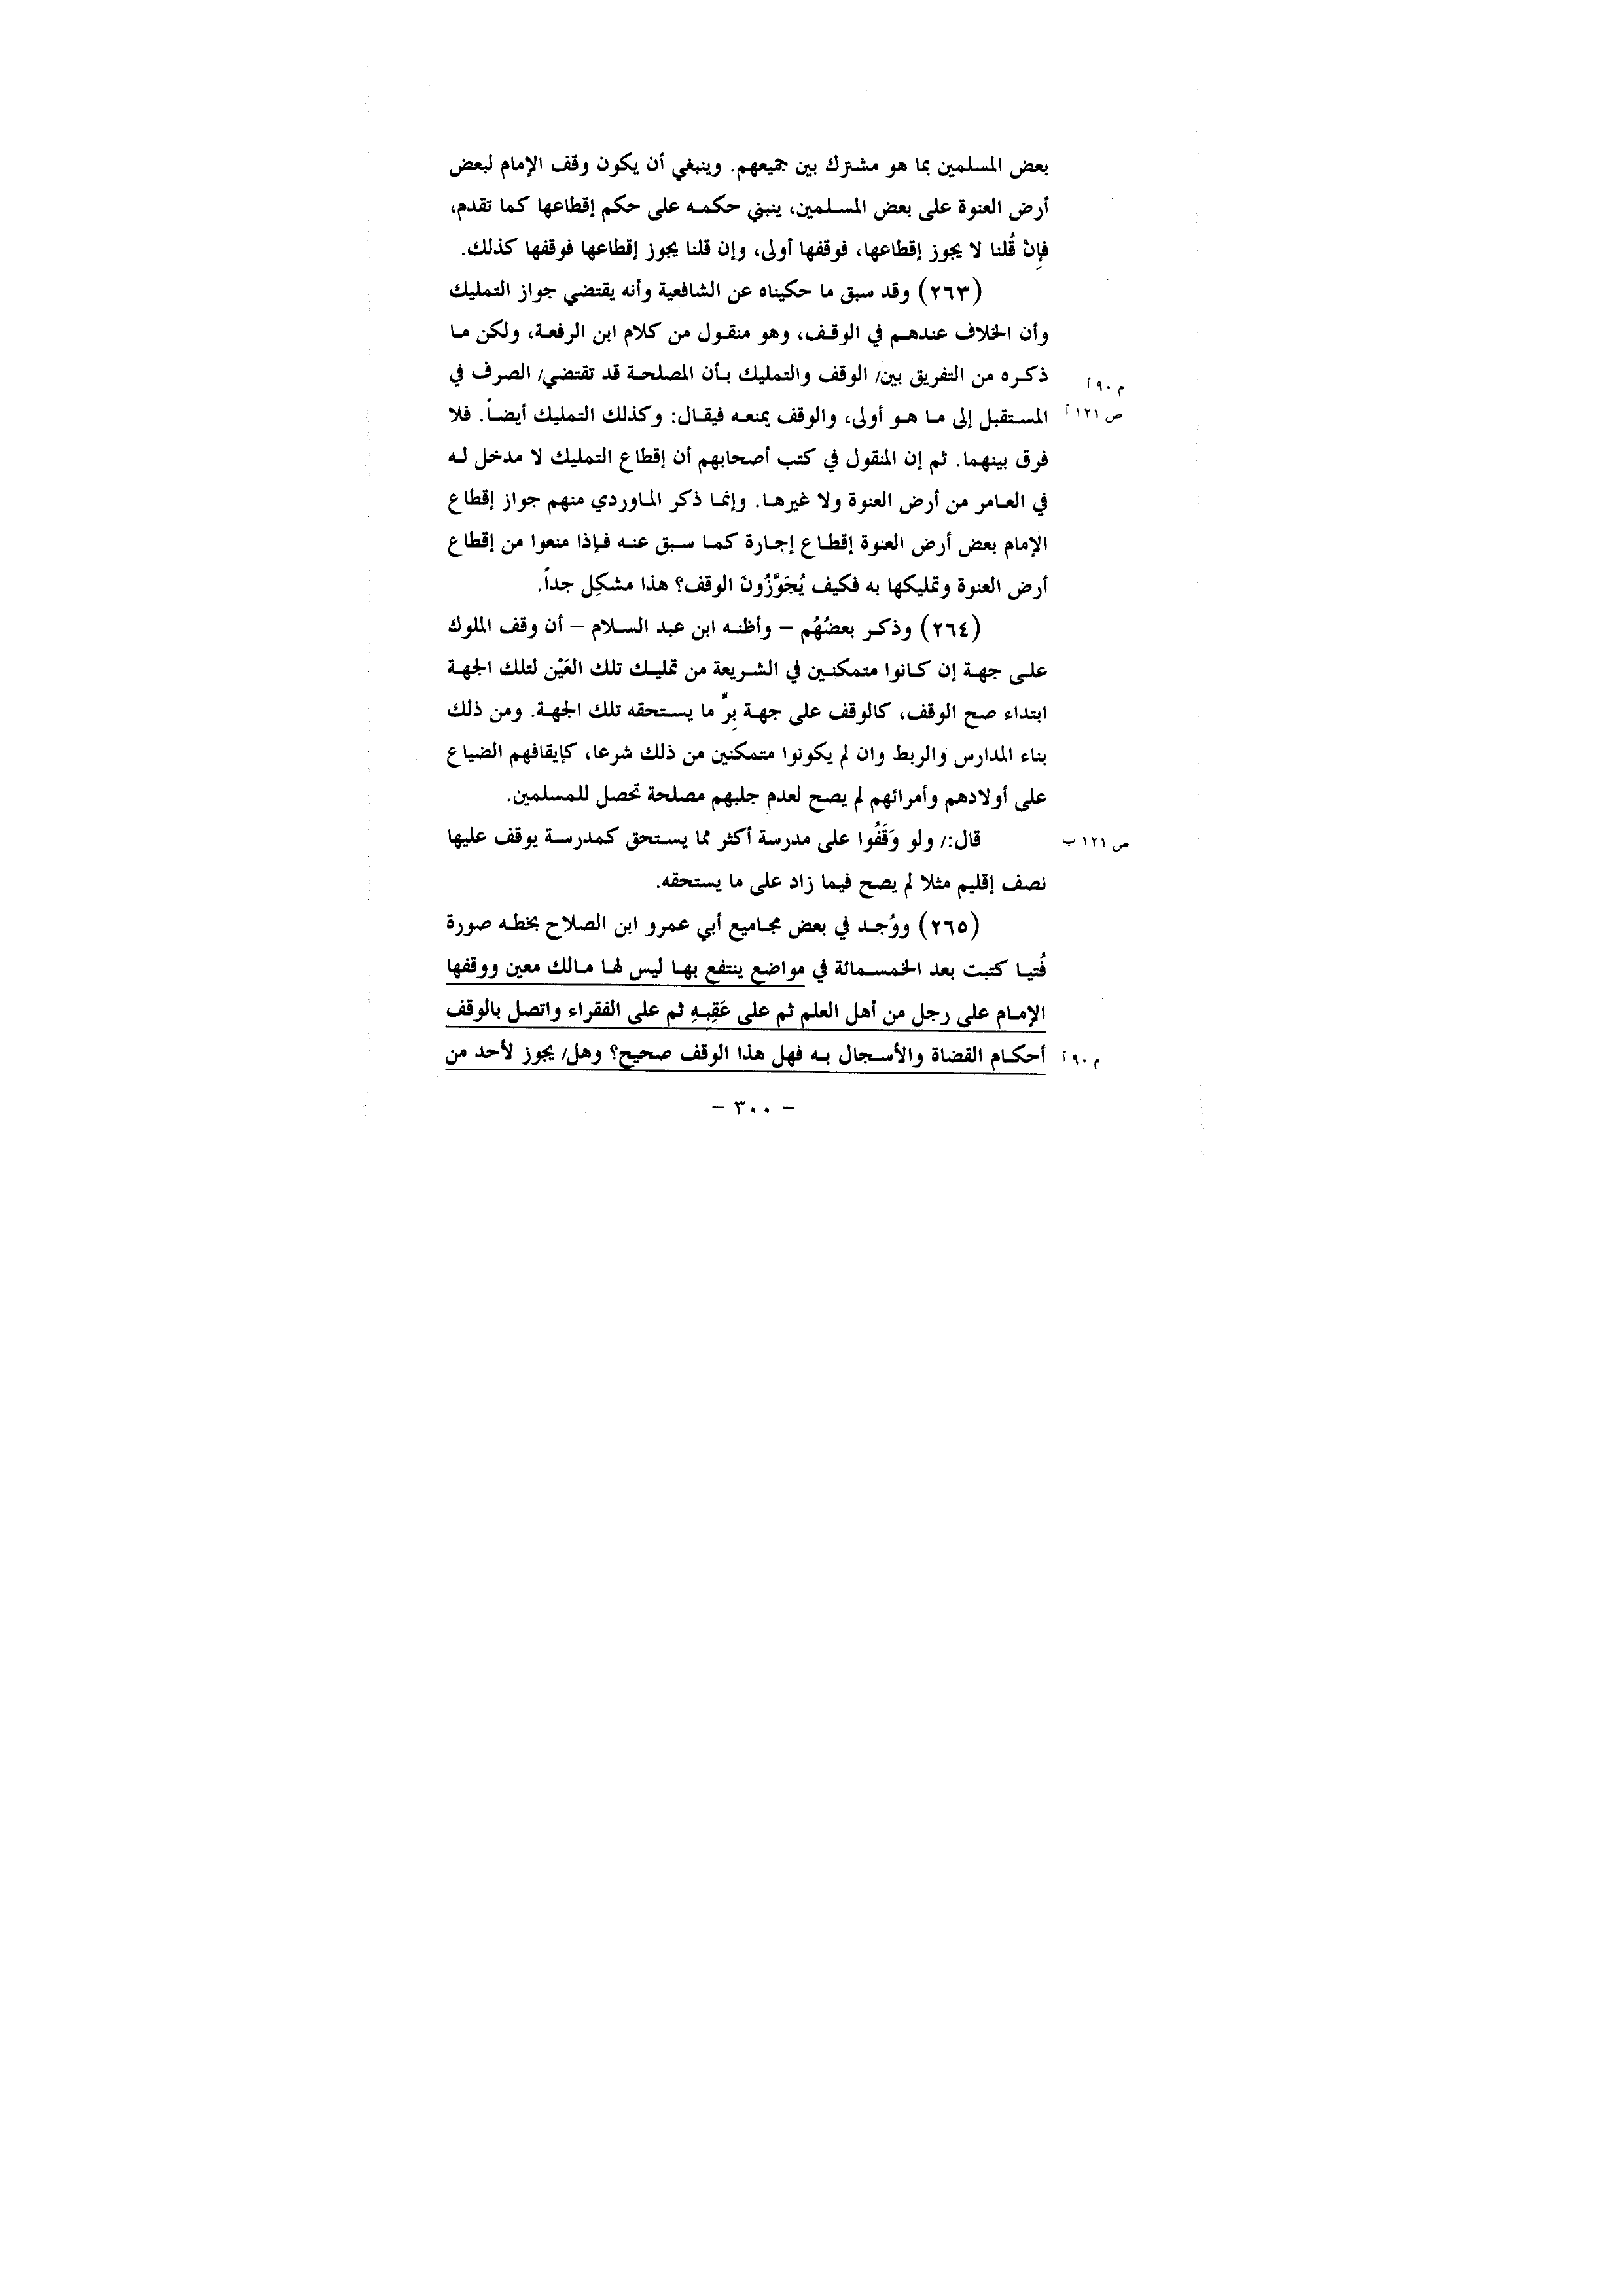 بعض المسلمين بما هو مشترك بين جميعهم. وينبغي أن يكون وقف الإمام لبعض
أرض العنوة على بعض المسلمين، ينبني حكمه على حكم إقطاعها كما تقدم،
فإِنْ قُلنا لا يجوز إقطاعها، فوقفها أولى، وإن قلنا يجوز إقطاعها فوقفها كذلك.
(٢٦٣) وقد سبق ما حكيناه عن الشافعية وأنه يقتضي جواز التمليك
وأن الخلاف عندهم في الوقف، وهو منقول من كلام ابن الرفعة، ولكن ما
ذكره من التفريق بين/ الوقف والتمليك بأن المصلحة قد تقتضي/ الصرف في
م ٩٠ أ
المستقبل إلى ما هو أولى، والوقف يمنعه فيقال: وكذلك التمليك أيضاً. فلا
ص ١٢١ أ
فرق بينهما. ثم إن المنقول في كتب أصحابهم أن إقطاع التمليك لا مدخل له
في العامر من أرض العنوة ولا غيرها. وإنما ذكر الماوردي منهم جواز إقطاع
الإمام بعض أرض العنوة إقطاع إجارة كما سبق عنه فإذا منعوا من إقطاع
أرض العنوة وتمليكها به فكيف يُجَوَّزُونَ الوقف؟ هذا مشكِل جداً.
(٢٦٤) وذكر بعضُهُم – وأظنه ابن عبد السلام – أن وقف الملوك
على جهة إن كانوا متمكنين في الشريعة من تمليك تلك العَيْن لتلك الجهة
ابتداء صح الوقف، كالوقف على جهة بِرٍّ ما يستحقه تلك الجهة. ومن ذلك
بناء المدارس والربط وان لم يكونوا متمكنين من ذلك شرعا، كإيقافهم الضياع
على أولادهم وأمرائهم لم يصح لعدم جلبهم مصلحة تحصل للمسلمين.
قال:/ ولو وَقَفُوا على مدرسة أكثر مما يستحق كمدرسة يوقف عليها
ص ١٢١ ب
نصف إقليم مثلا لم يصح فيما زاد على ما يستحقه.
(٢٦٥) ووُجد في بعض مجاميع أبي عمرو ابن الصلاح بخطه صورة
فُتيا كتبت بعد الخمسمائة في مواضع ينتفع بها ليس لها مالك معين ووقفها
الإمام على رجل من أهل العلم ثم على عَقِبهِ ثم على الفقراء واتصل بالوقف
أحكام القضاة والأسجال به فهل هذا الوقف صحيح؟ وهل/ يجوز لأحد من
م ٩٠ أ
– ٣٠٠ –